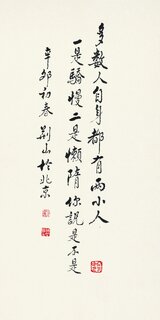 多数人自身都有两小人
一是骄慢二是懒隋你說是不是
辛卯初春荆山於北京